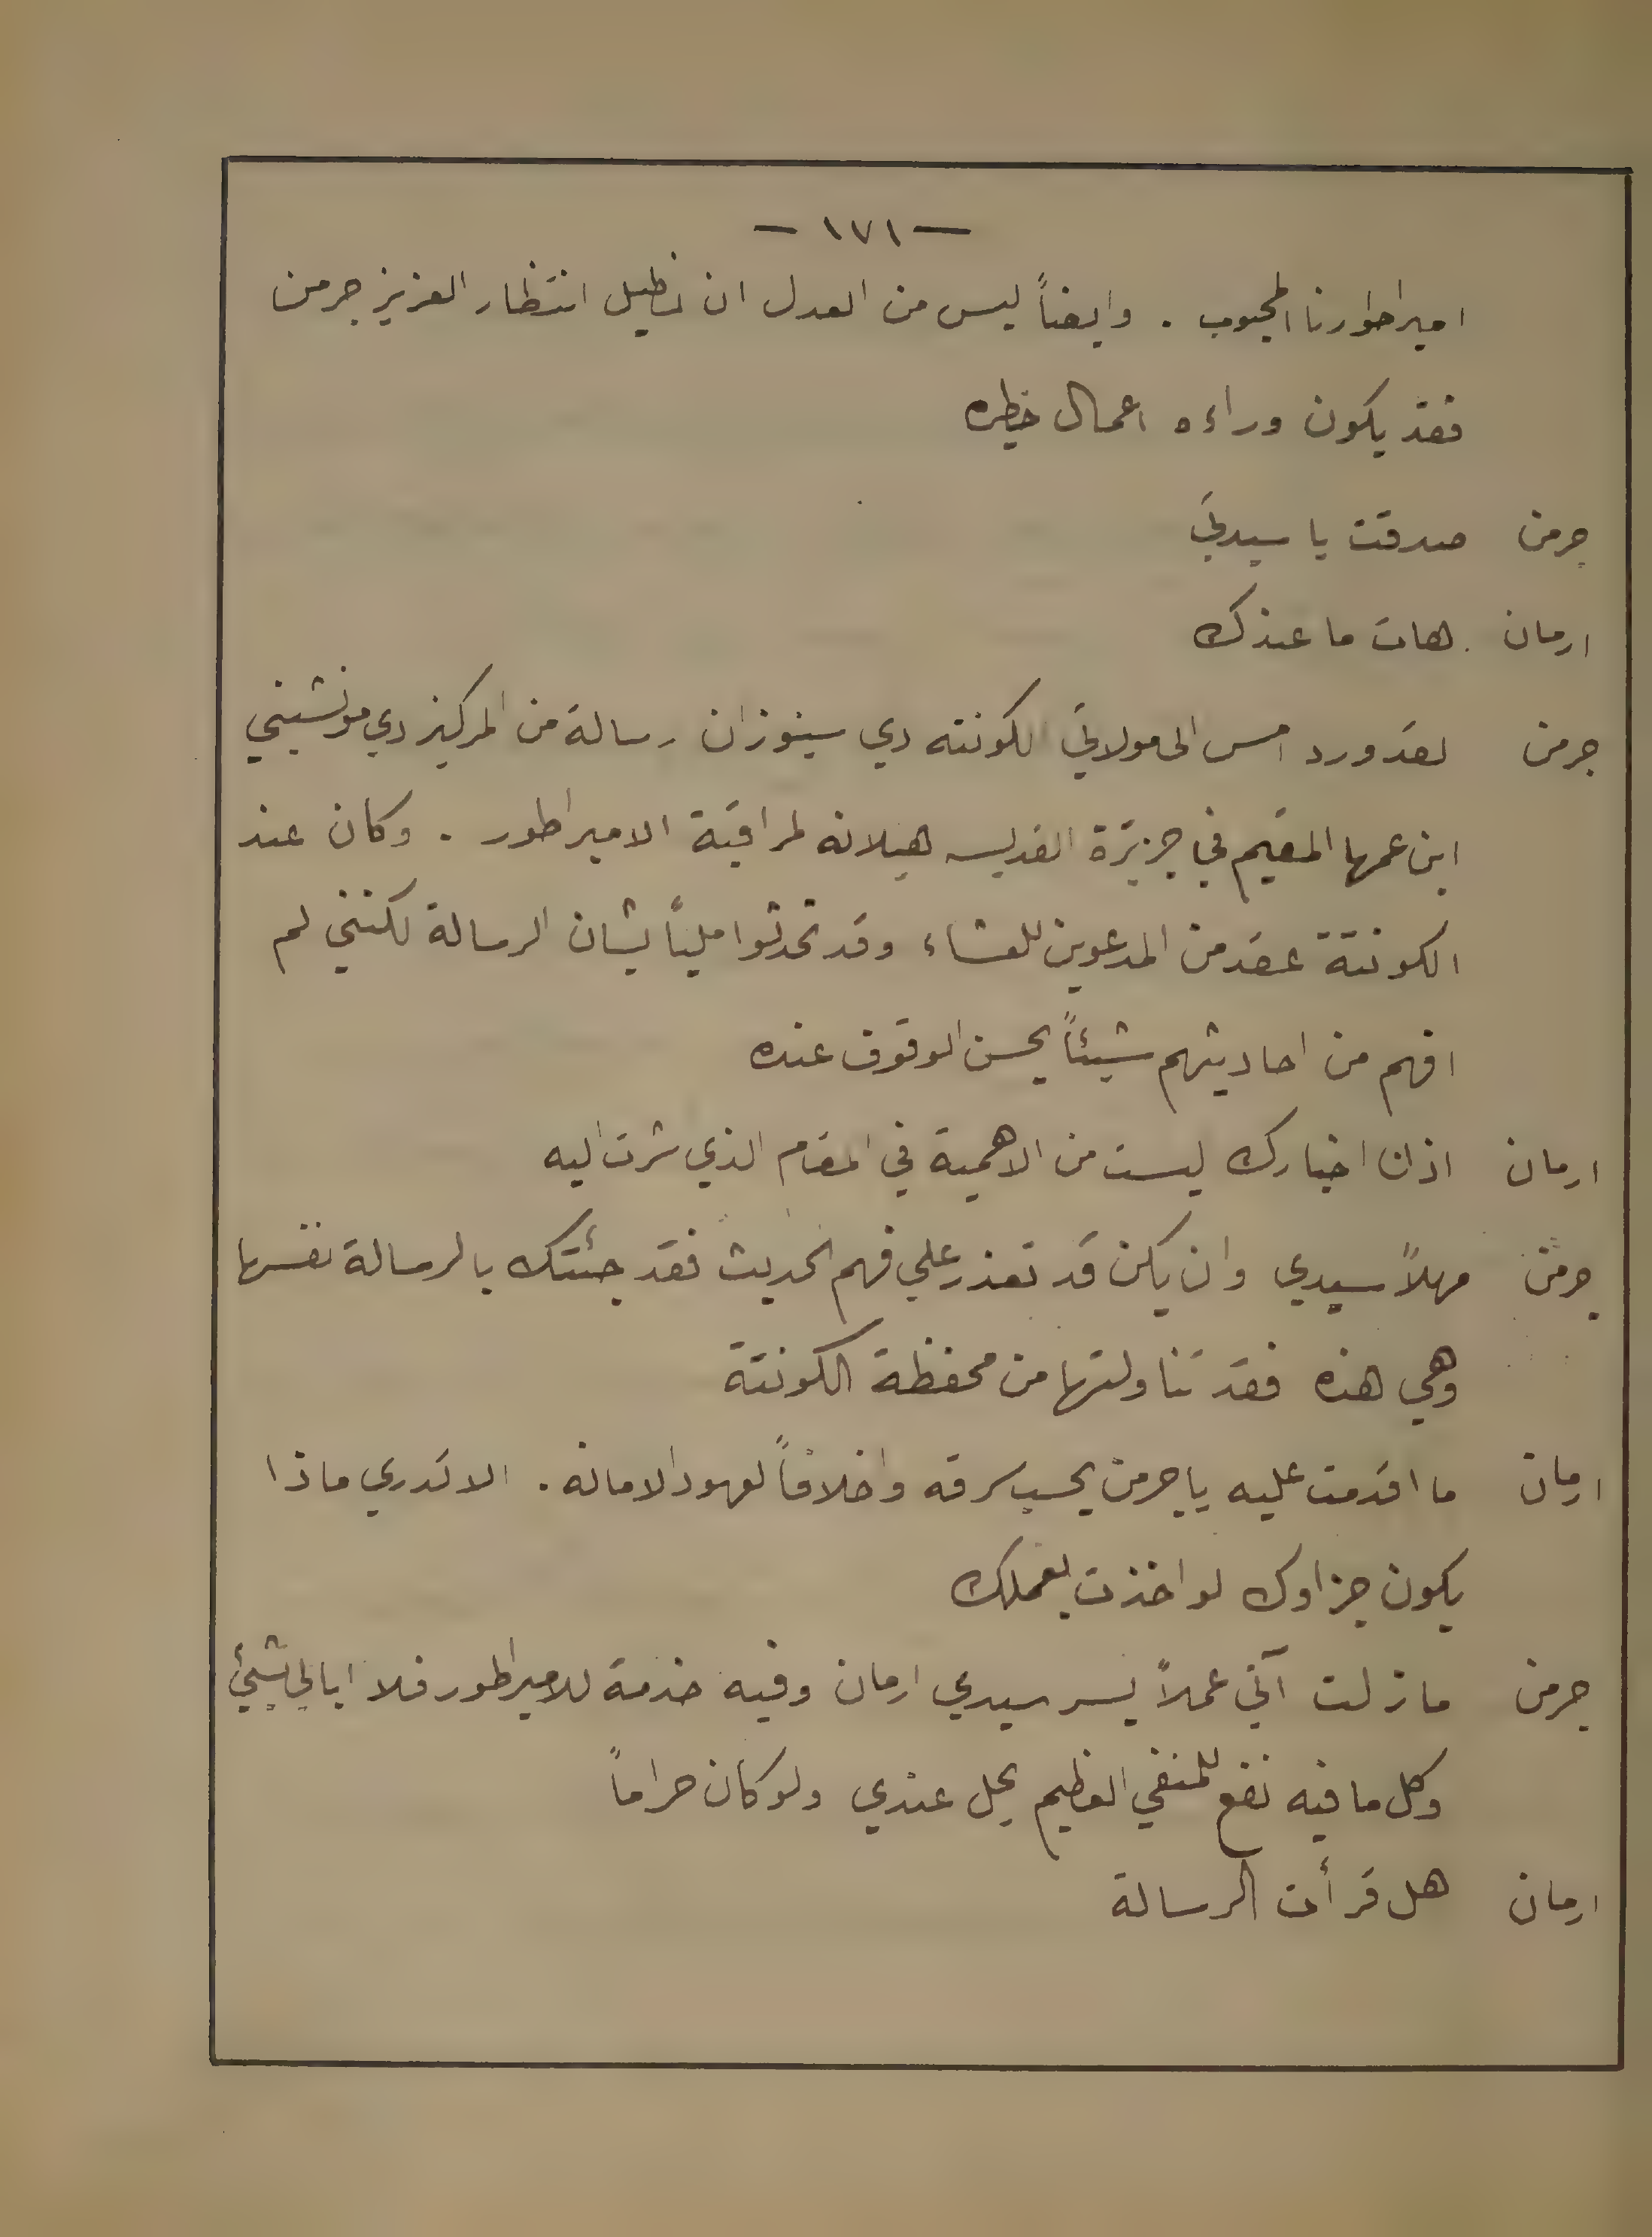 — ١٧١ —
امبراطورنا المحبوب . وايضاً ليس من العدل ان نطيل انتظار العزيز جرمن
فقد يكون وراءه اعمال خطره
جرمن صدقت يا سيدتي
ارمان هات ما عندك
جرمن لقد ورد امس الى مولاتي الكونته دي سينوزان رسالة من المركيز دي مونشيني
ابن عمها المقيم في جزيرة القديسه هيلانه لمراقبة الامبراطور . وكان عند
الكونتة عقد من المدعوين للعشاء وقد تحدثوا ملياً بشان الرسالة لكنني لم
افهم من احاديثهم شيئاً يحسن الوقوف عنده
ارمان اذن اخبارك ليست من الاهمية في المقام الذي شرت اليه
جرمن مهلاً سيدي وان يكن قد تعذر علي فهم الحديث فقد جئتك بالرسالة نفسها
وهي هذه فقد تناولتها من محفظة الكونتة
ارمان ما اقدمت عليه يا جرمن يحسب سرقه واخلافاً لعهود الامانه . الا تدري ماذا
يكون جزاوك لو اخذت بعملك
جرمن ما زلت آتي عملاً يسر سيدي ارمان وفيه خدمة للامبراطور فلا ابالي بشيئ
وكل ما فيه نفع للمنفي العظيم يحل عندي ولو كان حراماً
ارمان هل قرأت الرسالة